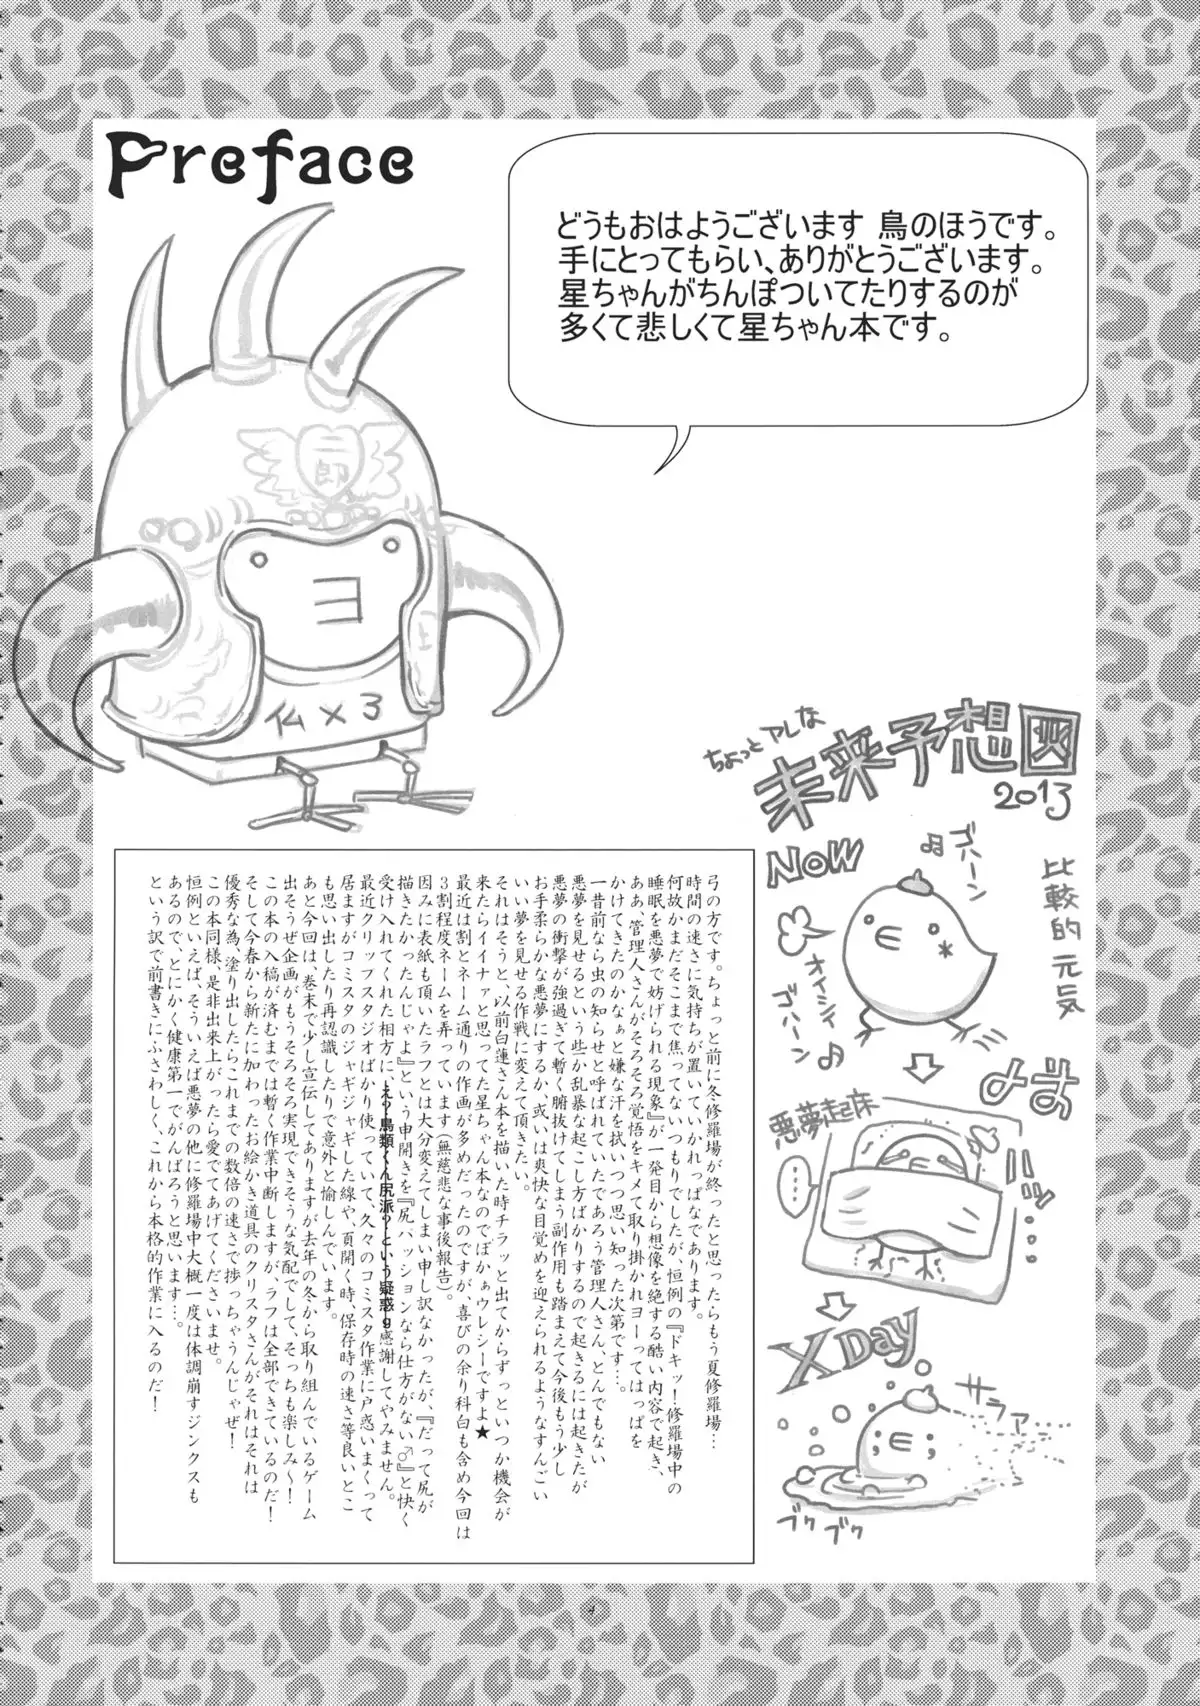 Preface
どうもおはようございます 鳥のほうです。
手にとってもらい、ありがとうございます。
星ちゃんがちんぽついてたりするのが
多くて悲しくて星ちゃん本です。
二郎
上
仏×3
ちょっとアレな
未来予想図
2013
NOW
ゴハーン
比較的元気
オイシイ
ゴハーン
よま
悪夢起床
……
ハッ
X Day
サラァァ
ブクブク
弓の方です。ちょっと前に冬修羅場が終ったと思ったらもう夏修羅場…
時間の速さに気持ちが置いていかれっぱなであります。
何故かまだそこまで焦ってないつもりでしたが、恒例の『ドキッ！修羅場中の
睡眠を悪夢で妨げられる現象』が一発目から想像を絶する酷い内容で起き、
ああ、管理人さんがそろそろ覚悟をキメて取り掛かれヨーってはっぱを
かけてきたのかなぁと嫌な汗を拭いつつ思い知った次第です…。
一昔前なら虫の知らせと呼ばれていたであろう管理人さん、とんでもない
悪夢を見せるという些か乱暴な起こし方ばかりするので起きるには起きたが
悪夢の衝撃が強過ぎて暫く腑抜けてしまう副作用も踏まえて今後もう少し
お手柔らかな悪夢にするか、或いは爽快な目覚めを迎えられるようなすんごい
いい夢を見せる作戦に変えて頂きたい。
それはそうと、以前白蓮さん本を描いた時チラッと出てからずっといつか機会が
来たらイイナァと思ってた星ちゃん本なのでぼかぁウレシーですよ★
最近は割とネーム通りの作画が多めだったのですが、喜びの余り科白も含め今回は
3割程度ネームを弄っています(無慈悲な事後報告)。
因みに表紙も頂いたラフとは大分変えてしまい申し訳なかったが、『だって尻が
描きたかったんじゃよ』という申開きを『尻パッションなら仕方がない♂』と快く
受け入れてくれた相方に、え？鳥類くん尻派？という疑惑g感謝してやみません。
最近クリップスタジオばかり使っていて、久々のコミスタ作業に戸惑いまくって
居ますがコミスタのジャギジャギした線や、頁開く時、保存時の速さ等良いとこ
も思い出したり再認識したりで意外と愉しんでいます。
あと今回は、巻末で少し宣伝してありますが去年の冬から取り組んでいるゲーム
出そうぜ企画がもうそろそろ実現できそうな気配でして、そっちも楽しみ～！
この本の入稿が済むまでは暫く作業中断しますが、ラフは全部できているのだ！
そして今春から新たに加わったお絵かき道具のクリスタさんがそれはそれは
優秀な為、塗り出したらこれまでの数倍の速さで捗っちゃうんじゃぜ！
この本同様、是非出来上がったら愛でてあげてくださいませ。
恒例といえば、そういえば悪夢の他に修羅場中大概一度は体調崩すジンクスも
あるので、とにかく健康第一でがんばろうと思います…。
という訳で前書きにふさわしく、これから本格的作業に入るのだ！
4